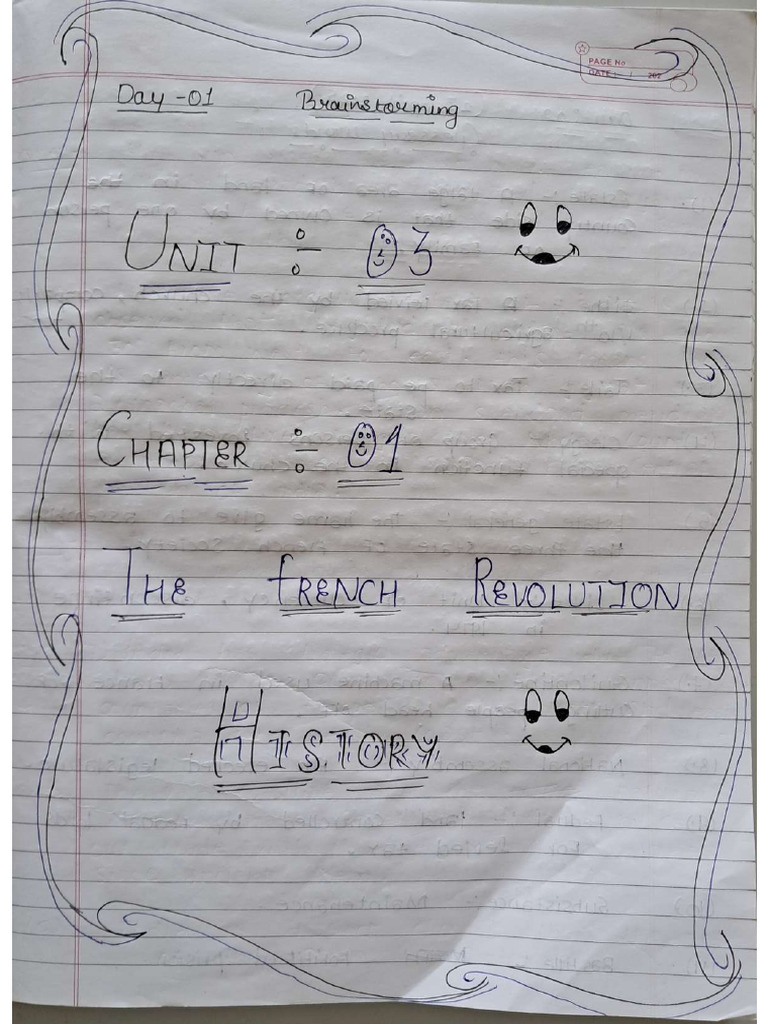 PAGE No
DATE: / / 202
Day -01 Brainstorming
UNIT ÷ 03
CHAPTER ÷ 01
THE FRENCH REVOLUTION
HISTORY